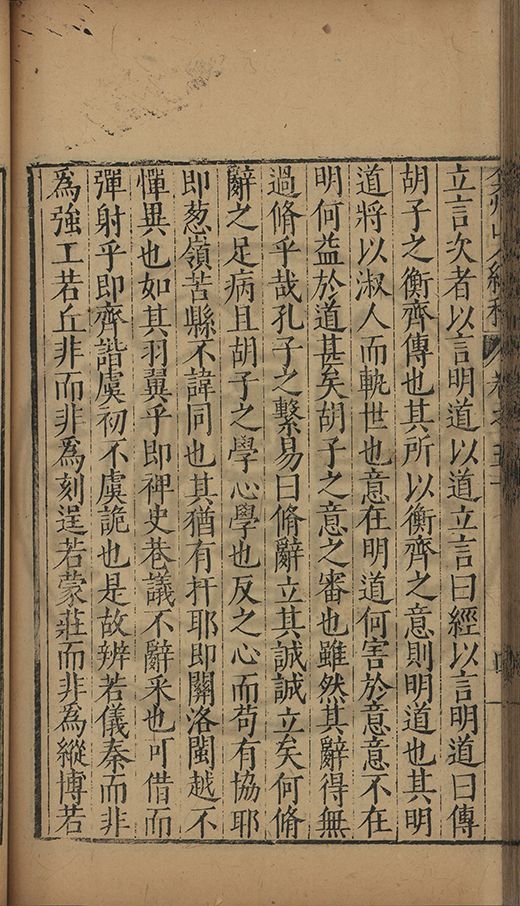 立言次者以言明道以道立言曰經以言明道曰傳
胡子之衡齊傳也其所以衡齊之意則明道也其明
道將以淑人而軌世也意在明道何害於意意不在
明何益於道甚矣胡子之意之審也雖然其辭得無
過脩乎哉孔子之繫易曰脩辭立其誠誠立矣何脩
辭之足病且胡子之學心學也反之心而苟有協耶
即葱嶺苦縣不諱同也其猶有扞耶即關洛閩越不
憚異也如其羽翼乎即稗史巷議不辭采也可借而
彈射乎即齊諧虞初不虞詭也是故辨若儀秦而非
為強工若丘非而非為刻逞若蒙莊而非為縱博若